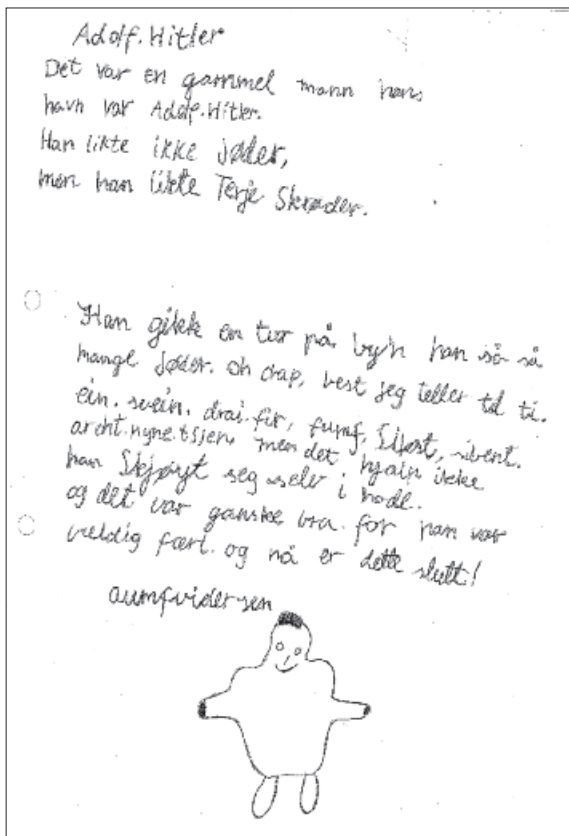 Adolf.Hitler
Det var en gammel mann hans
navn var Adolf.Hitler.
Han likte ikke jøder,
men han likte Terje Skrøder.
Han gikk en tur på by'n han så så
mange Jøder. oh drap, vest jeg teller til ti.
ein. svein. drai. fir, fumf, Sikst, sibent.
archt. nyne. tsjen. men det hjalp ikke
han Skjøyt seg selv i hode.
og det var ganske bra. for han var
veldig fært. og nå er dette slutt!
aumfvidersen